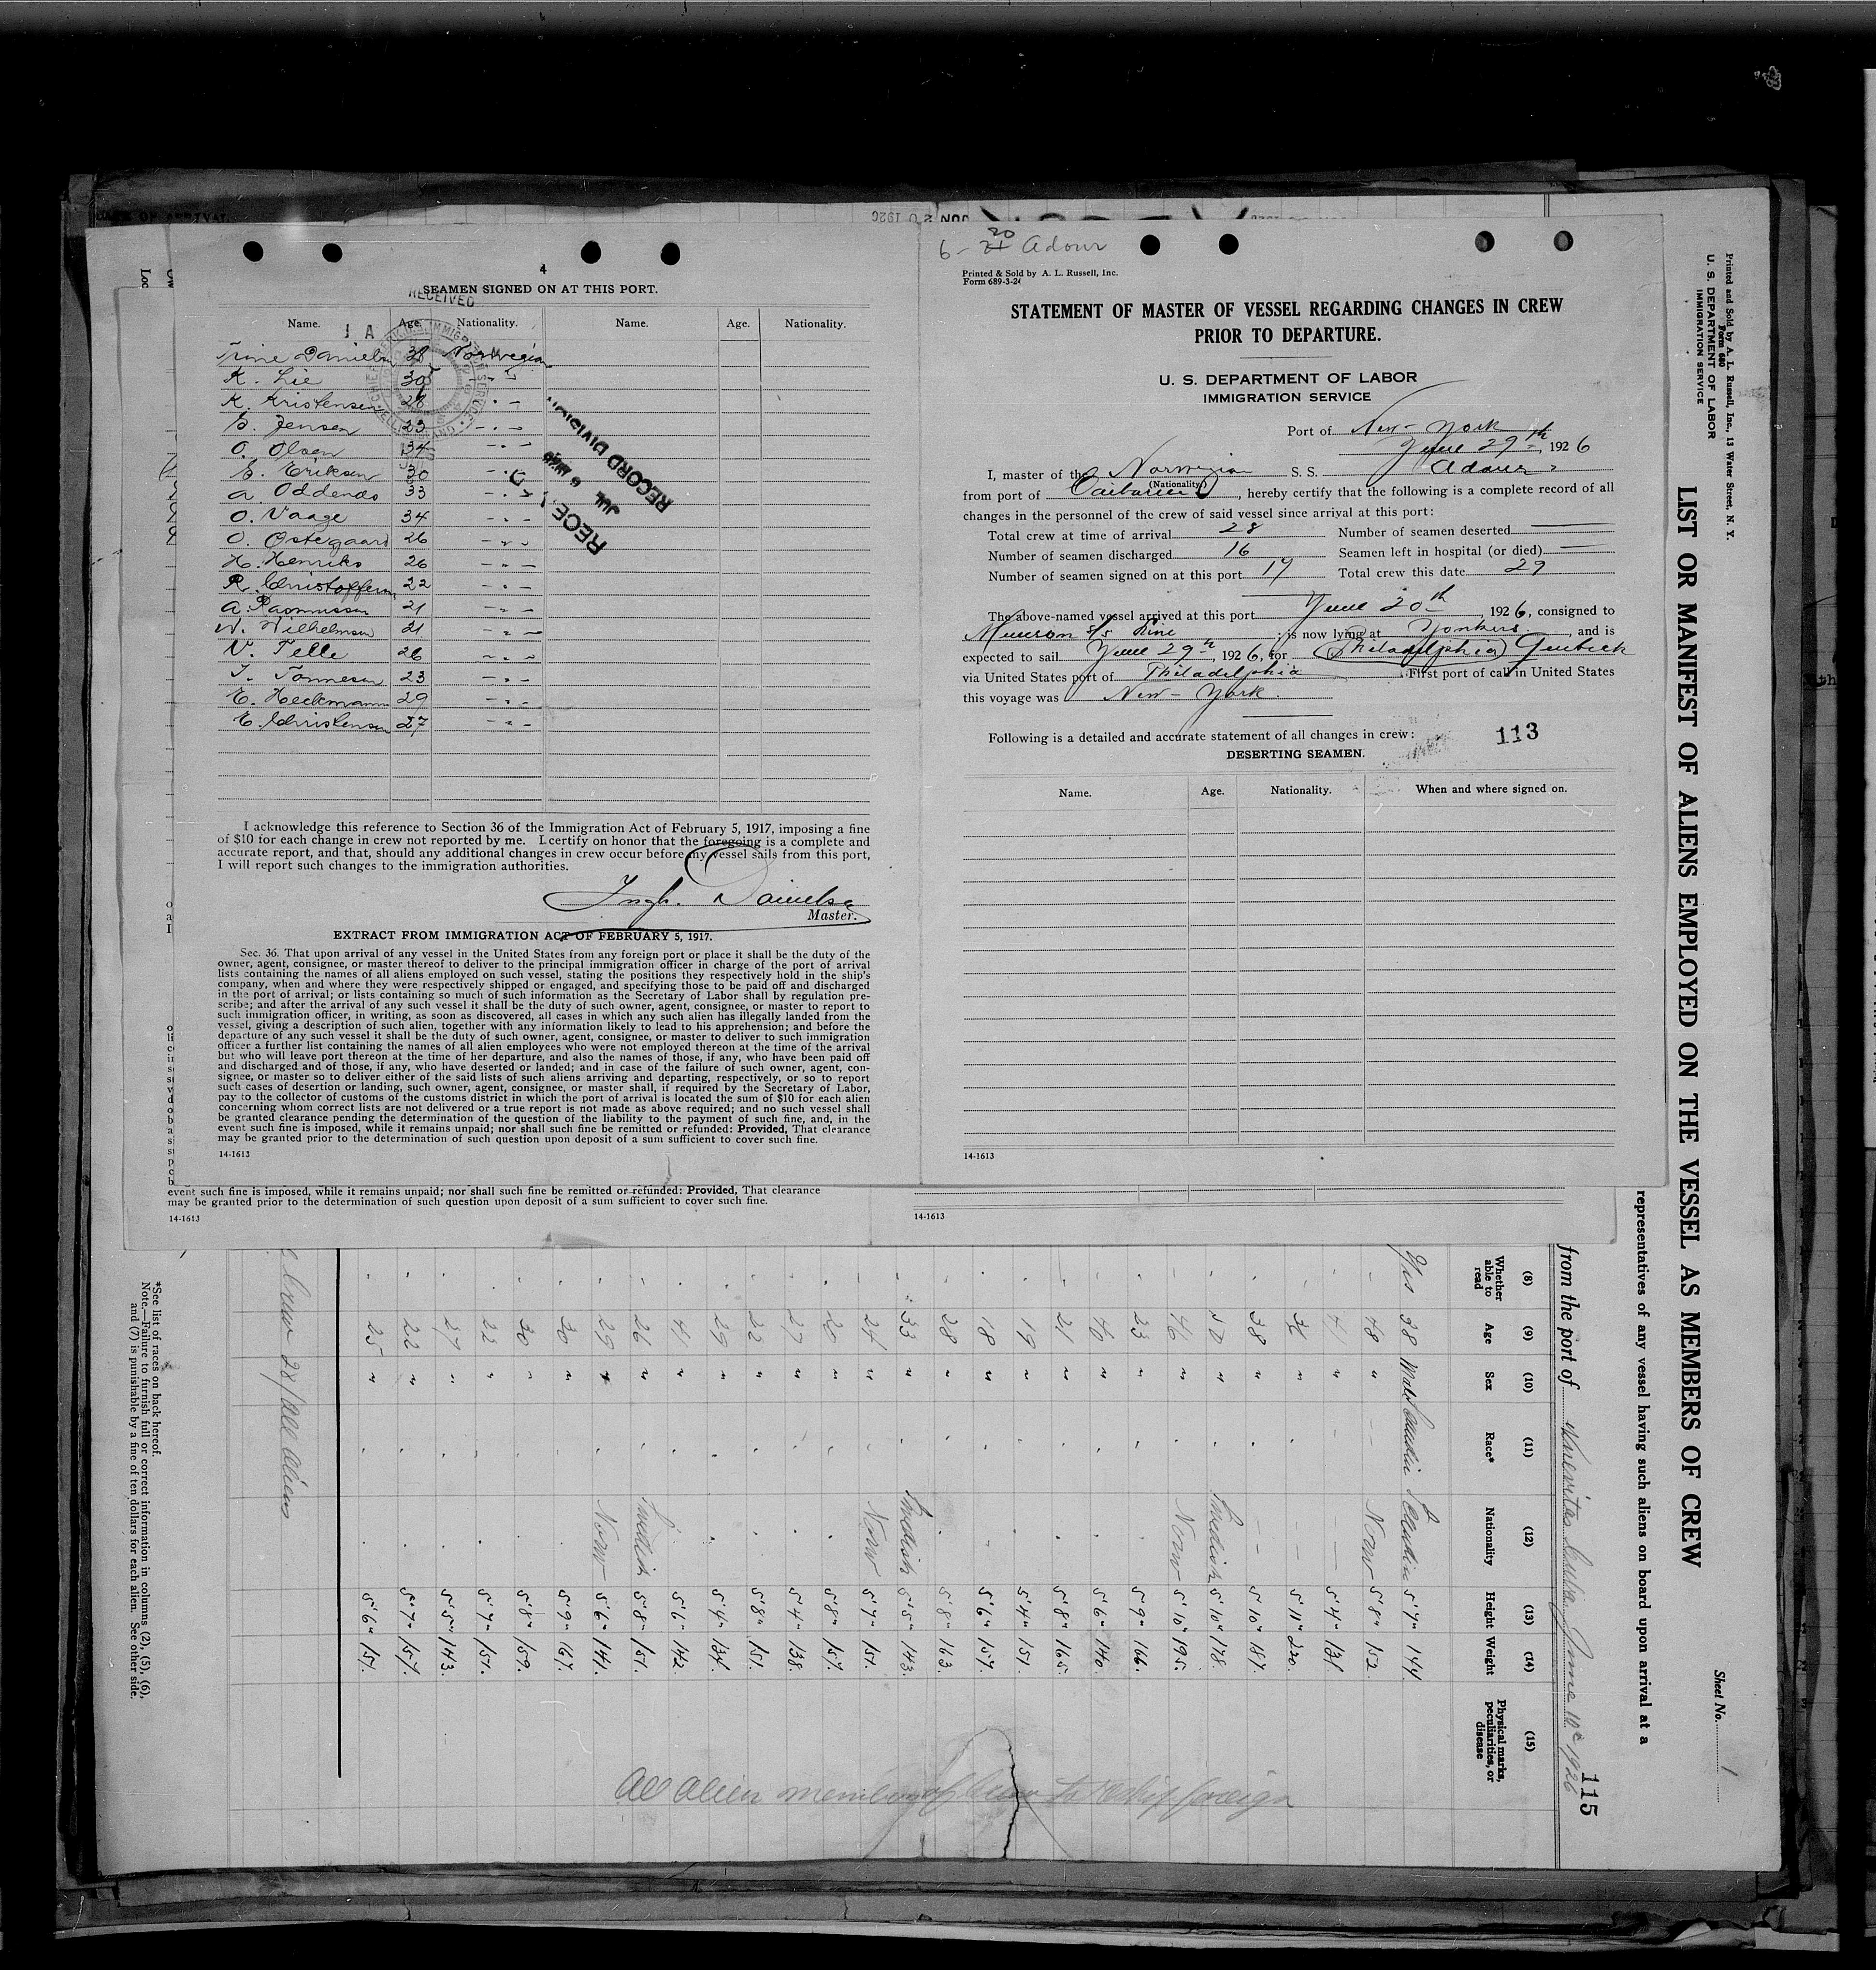 4
SEAMEN SIGNED ON AT THIS PORT.
RECEIVED
Name. Age. Nationality. Name. Age. Nationality.
Trine Danielsen 38 Norwegian
K. Lie 30 - " -
K. Kristensen 28 - " -
Jensen 23 - " -
O. Olsen 34 - " -
Eriksen 30 - " -
A. Oddenes 33 - " -
O. Vaage 34 - " -
O. Ostegaard 26 - " -
H. Henriks 26 - " -
R. Christoffersen 22 - " -
A. Rasmussen 21 - " -
W. Wilhelmsen 21 - " -
V. Telle 26 - " -
T. Tonnesen 23 - " -
E. Heckmann 29 - " -
E. Christensen 27 - " -
RECORD DIVISION
JUL
I acknowledge this reference to Section 36 of the Immigration Act of February 5, 1917, imposing a fine
of $10 for each change in crew not reported by me. I certify on honor that the foregoing is a complete and
accurate report, and that, should any additional changes in crew occur before my vessel sails from this port,
I will report such changes to the immigration authorities.
Ingh. Danielsen
Master.
EXTRACT FROM IMMIGRATION ACT OF FEBRUARY 5, 1917.
Sec. 36. That upon arrival of any vessel in the United States from any foreign port or place it shall be the duty of the
owner, agent, consignee, or master thereof to deliver to the principal immigration officer in charge of the port of arrival
lists containing the names of all aliens employed on such vessel, stating the positions they respectively hold in the ship's
company, when and where they were respectively shipped or engaged, and specifying those to be paid off and discharged
in the port of arrival; or lists containing so much of such information as the Secretary of Labor shall by regulation pre-
scribe; and after the arrival of any such vessel it shall be the duty of such owner, agent, consignee, or master to report to
such immigration officer, in writing, as soon as discovered, all cases in which any such alien has illegally landed from the
vessel, giving a description of such alien, together with any information likely to lead to his apprehension; and before the
departure of any such vessel it shall be the duty of such owner, agent, consignee, or master to deliver to such immigration
officer a further list containing the names of all alien employees who were not employed thereon at the time of the arrival
but who will leave port thereon at the time of her departure, and also the names of those, if any, who have been paid off
and discharged and of those, if any, who have deserted or landed; and in case of the failure of such owner, agent, con-
signee, or master so to deliver either of the said lists of such aliens arriving and departing, respectively, or so to report
such cases of desertion or landing, such owner, agent, consignee, or master shall, if required by the Secretary of Labor,
pay to the collector of customs of the customs district in which the port of arrival is located the sum of $10 for each alien
concerning whom correct lists are not delivered or a true report is not made as above required; and no such vessel shall
be granted clearance pending the determination of the question of the liability to the payment of such fine, and, in the
event such fine is imposed, while it remains unpaid; nor shall such fine be remitted or refunded: Provided, That clearance
may be granted prior to the determination of such question upon deposit of a sum sufficient to cover such fine.
14-1613
event such fine is imposed, while it remains unpaid; nor shall such fine be remitted or refunded: Provided, That clearance
may be granted prior to the determination of such question upon deposit of a sum sufficient to cover such fine.
14-1613
6-20 Adour
Printed & Sold by A. L. Russell, Inc.
Form 689-3-24
STATEMENT OF MASTER OF VESSEL REGARDING CHANGES IN CREW
PRIOR TO DEPARTURE.
U. S. DEPARTMENT OF LABOR
IMMIGRATION SERVICE
Port of New-York
June 29th, 1926
I, master of the Norwegian S. S. Adour,
(Nationality)
from port of Caibarien, hereby certify that the following is a complete record of all
changes in the personnel of the crew of said vessel since arrival at this port:
Total crew at time of arrival 28 Number of seamen deserted
Number of seamen discharged 16 Seamen left in hospital (or died)
Number of seamen signed on at this port 17 Total crew this date 29
The above-named vessel arrived at this port June 20th, 1926, consigned to
Munson S/S Line; is now lying at Yonkers, and is
expected to sail June 29th, 1926, for (Philadelphia)
via United States port of Philadelphia. First port of call in United States
this voyage was New-York.
Following is a detailed and accurate statement of all changes in crew:
113
DESERTING SEAMEN.
Name. Age. Nationality. When and where signed on.
14-1613
14-1613
Printed and Sold by A. L. Russell, Inc., 13 Water Street, N. Y.
Form 680
U. S. DEPARTMENT OF LABOR
IMMIGRATION SERVICE
LIST OR MANIFEST OF ALIENS EMPLOYED ON THE VESSEL AS MEMBERS OF CREW
Sheet No. 1
representatives of any vessel having such aliens on board upon arrival at a
115
from the port of Nuevitas Cuba, June 1926
(8) (9) (10) (11) (12) (13) (14) (15)
Whether able to read Age Sex Race* Nationality Height Weight Physical marks, peculiarities, or disease
Yes 38 Male Scandin 5'7" 144.
48 " Norw 5'8" 152.
41 " 5'4" 131
" 5'11" 220.
38 " 5'10" 187.
50 " Swedish 5'10" 178.
46 " Norw 5'10" 195.
23 " 5'9" 166.
40 " 5'6" 140
21 " 5'8" 165.
19 " 5'4" 151.
18 " 5'6" 157.
28 " 5'8" 163.
33 " Swedish 5'5" 143.
24 " Norw 5'7" 151.
20 " 5'8" 157.
27 " 5'4" 138.
22 " 5'8" 151.
29 " 5'4" 134.
41 " 5'6" 142.
26 " Swedish 5'8" 151.
29 " Norw 5'6" 141.
30 " 5'9" 167.
30 " 5'8" 159.
22 " 5'7" 151.
27 " 5'5" 143.
22 " 5'7" 157.
25 " 5'6" 151.
All alien members of crew to reship foreign
Crew 28/All Aliens
*See list of races on back hereof.
Note.—Failure to furnish full or correct information in columns (2), (5), (6),
and (7) is punishable by a fine of ten dollars for each alien. See other side.